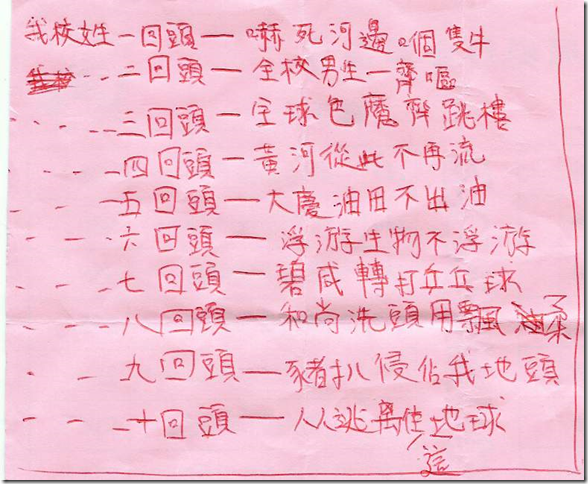 我校女生一回頭—嚇死河邊嗰隻牛
- - 二回頭—全校男生一齊嘔
- - - - 三回頭—全球色魔齊跳樓
- - - - 四回頭—黃河從此不再流
- - - - 五回頭—大慶油田不出油
- - - 六回頭—浮游生物不浮游
- - - 七回頭—碧咸轉打乒乓球
- - - - 八回頭—和尚洗頭用飄柔
- - - 九回頭—豬扒侵佔我地頭
- - - - 十回頭—人人逃離這地球